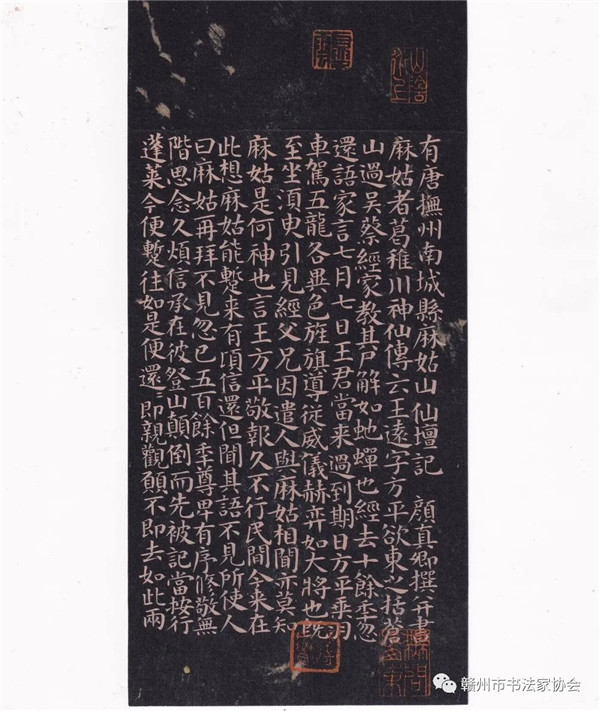 有唐撫州南城縣麻姑山仙壇記 顏真卿撰并書
麻姑者葛稚川神仙傳云王遠字方平欲東之括蒼
山過吳蔡經家教其尸解如虵蟬也經去十餘季忽
還語家言七月七日王君當来過到期日方平乗羽
車駕五龍各異色旌旗導従威儀赫弈如大將也既
至坐湏臾引見經父兄因遣人與麻姑相聞亦莫知
麻姑是何神也言王方平敬報久不行民間今来在
此想麻姑能蹔来有頃信還但聞其語不見所使人
曰麻姑再拜不見忽已五百餘季尊卑有序修敬無
階思念久煩信承在彼登山顛倒而先被記當按行
蓬萊今便蹔往如是便還還即親觀願不即去如此兩
赣州市书法家协会